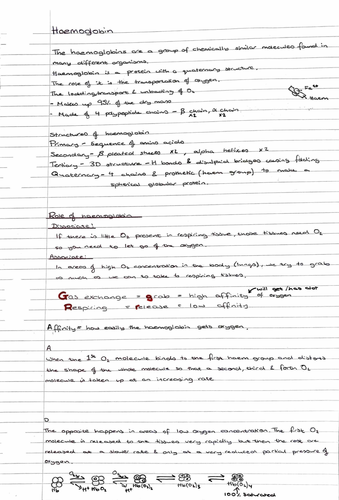 Haemoglobin
The haemoglobins are a group of chemically similar molecules found in
many different organisms.
Haemoglobin is a protein with a quaternary structure.
The role of it is the transportation of oxygen.
The loading, transport & unloading of O₂
- Makes up 95% of the dry mass
- Made of 4 polypeptide chains - β chain, α chain
x2 x2
Fe²⁺
Haem
Structures of haemoglobin
Primary - Sequence of amino acids
Secondary - β pleated sheets x2, alpha helices x2
Tertiary - 3D structure - H bonds & disulphid bridges causing folding
Quaternary - 4 chains & prosthetic (haem group) to make a
spherical globular protein.
Role of haemoglobin
Dissociate:
If there is little O₂ present in respiring tissue, those tissues need O₂
so you need to let go of the oxygen.
Associate:
In areas of high O₂ concentration in the body (lungs), we try to grab
as much as we can to take to respiring tissues.
will get/has lot
Gas exchange = grab = high affinity of oxygen
Respiring = release = low affinity
Affinity = how easily the haemoglobin gets oxygen.
A
When the 1st O₂ molecule binds to the first haem group and distorts
the shape of the whole molecule so that a second, third & forth O₂
molecule is taken up at an increasing rate
D
The opposite happens in areas of low oxygen concentration. The first O₂
molecule is released to the tissues very rapidly but then the rest are
released at a slower rate & only at a very reduced partial pressure of
oxygen.
O₂ O₂
Hb H⁺ HbO₂ H⁺ Hb(O₂)₂ Hb(O₂)₃ Hb(O₂)₄
100% saturated